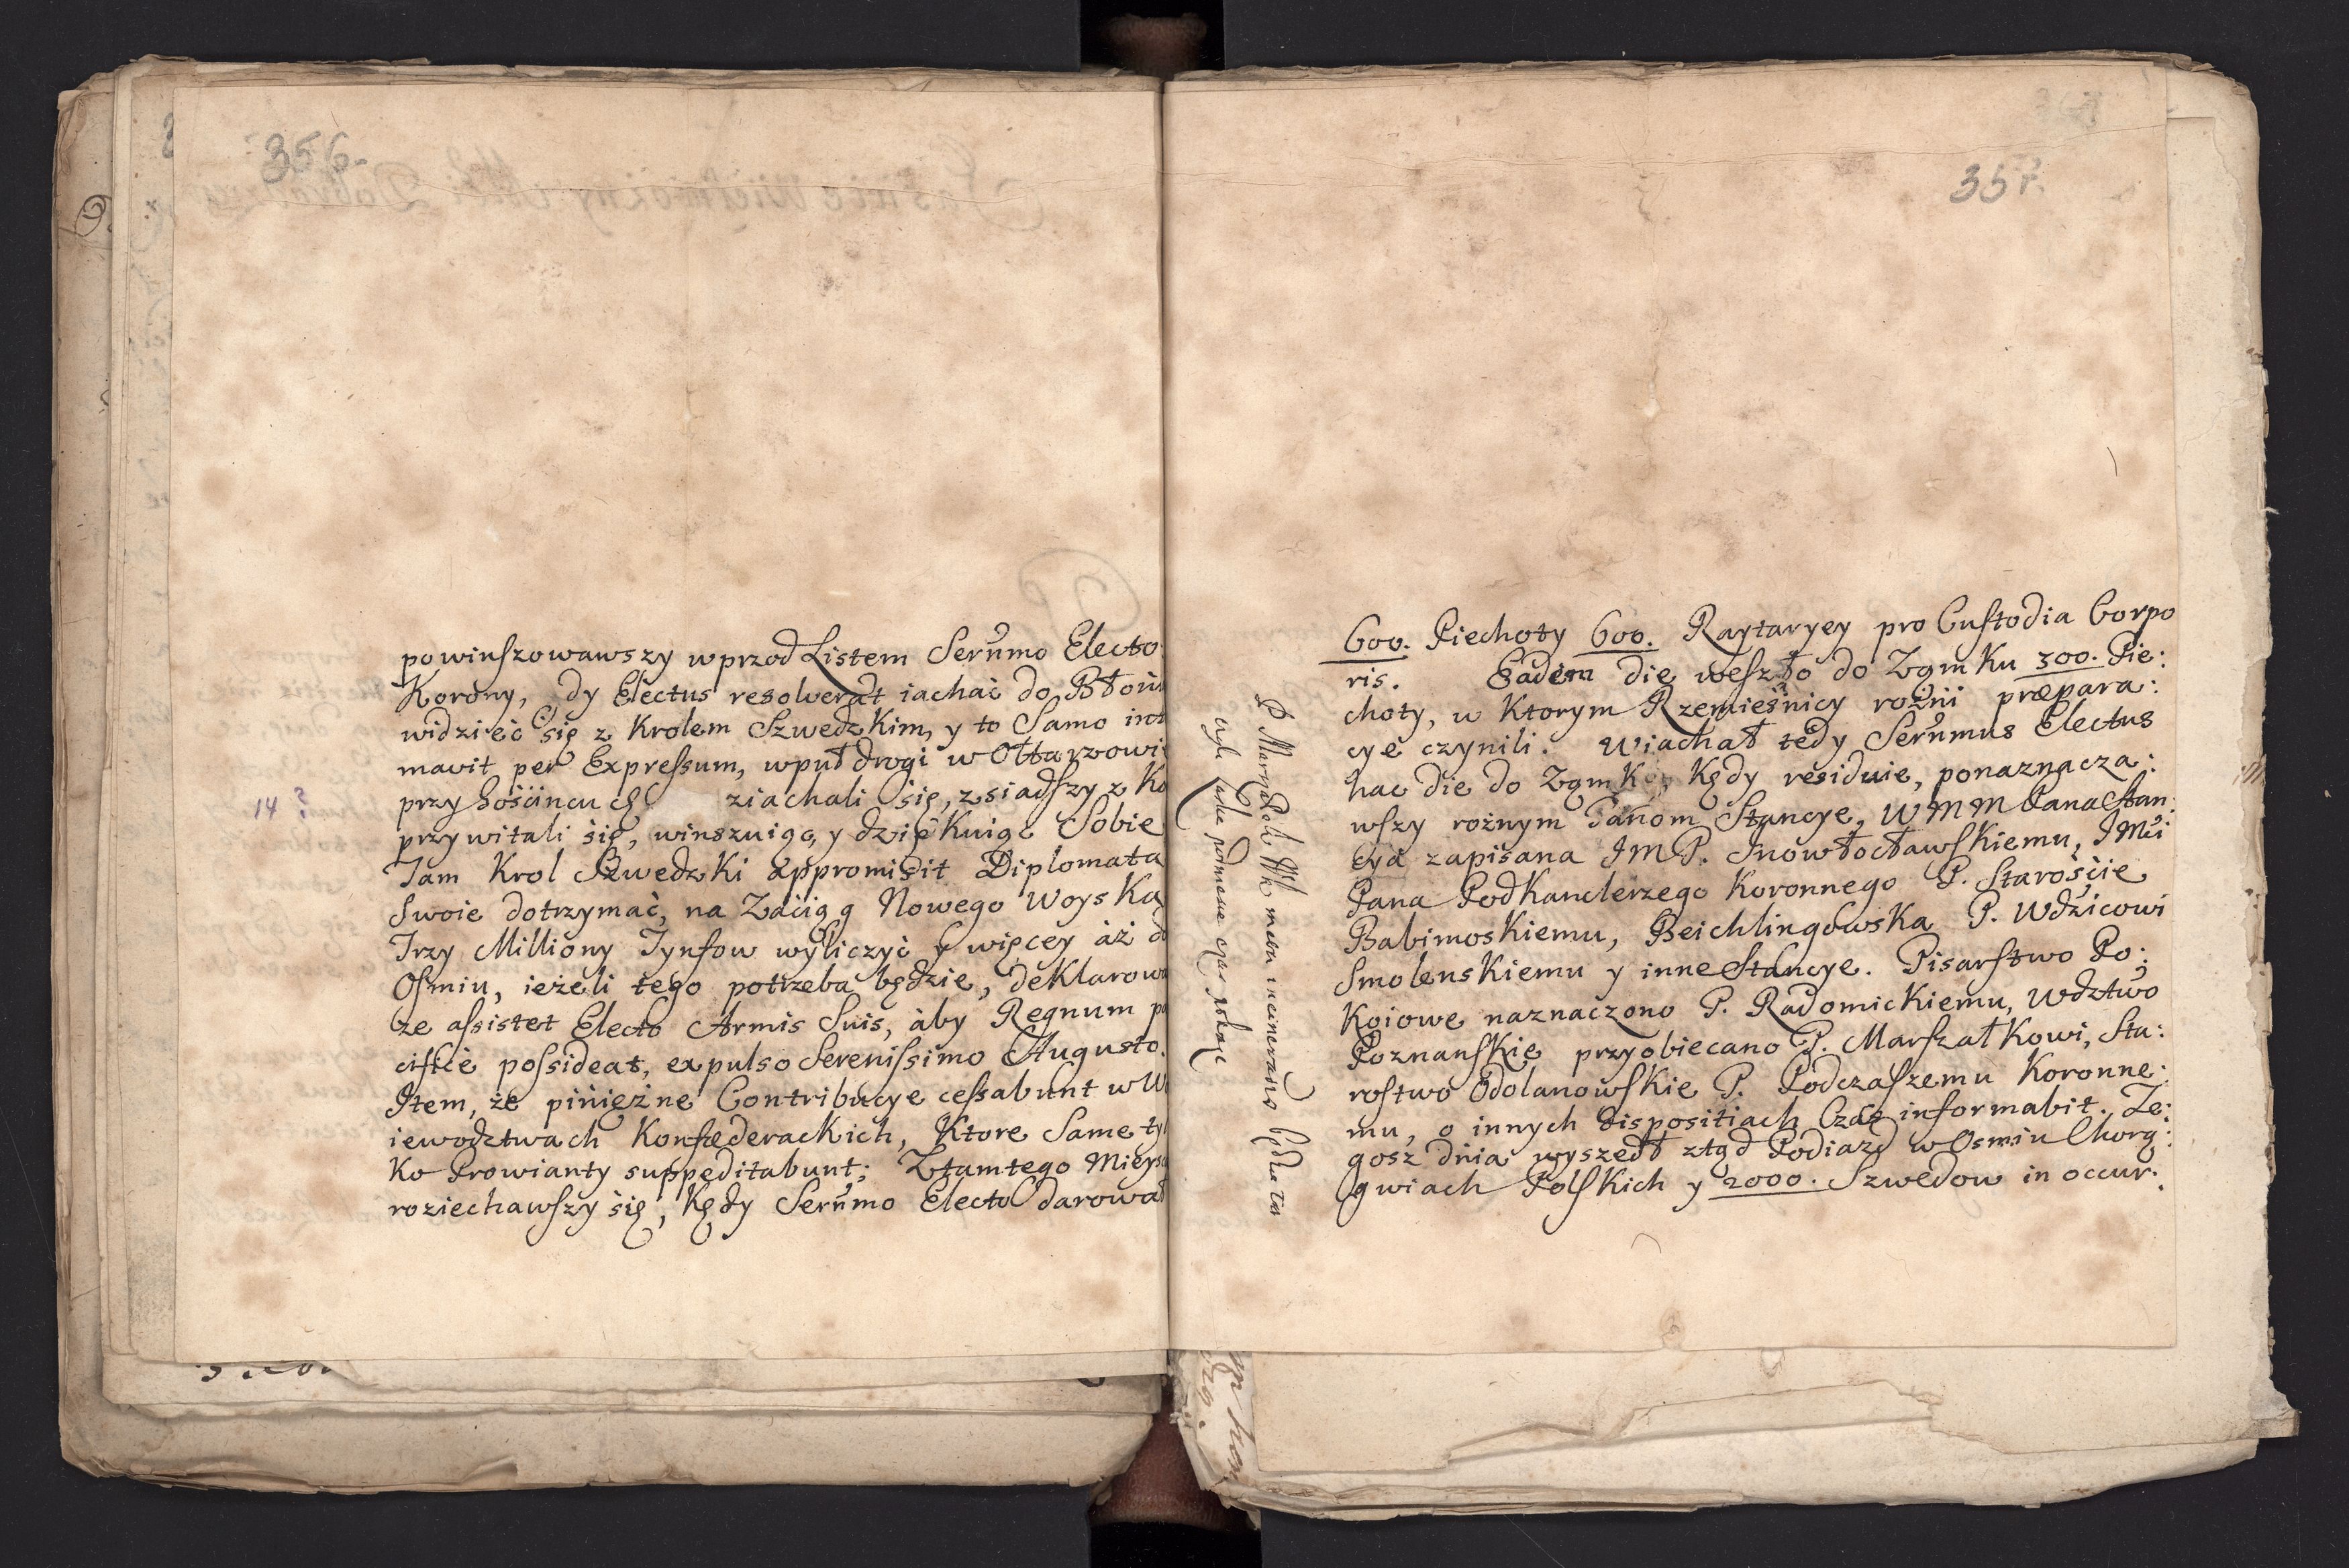 356.
powinszowawszy wprzod Listem Serũmo Electo
Korony, dy Electus resolverat iachać do Błoni
widzieć się z Krolem Szwedzkim, y to Samo inti
mavit per Expressum, wpuł drogi w Ołtarzowi
przy Gościncu ziachali się, zsiadszy z Ko
14?
przywitali się, winszuiąc, y dziękuiąc Sobie
Tam Krol Szwedzki appromisit Diplomata
Swoie dotrzymać, na Zaciąg Nowego Woyska
Trzy Milliony Tynfow wyliczyć y więcey aż do
Osmiu, ieżeli tego potrzeba będzie, deklarow
że assistet Electo Armis Suis, aby Regnum pa
cifice possideat, expulso Serenissimo Augusto.
Item, że pinięźne Contribucye cessabunt w Wo
iewodztwach Konfæderackich, Ktore Same tyl
ko Prowianty suppeditabunt; Ztamtego Mieysca
roziechawszy się, Kędy Serũmo Electo darował
357.
600. Piechoty 600. Raytaryey pro Custodia Corpo
ris. Eadem die weszło do Zamku 300. Pie:
choty, w Ktorym Rzemieśnicy rożni præpara:
cye czynili. Wiachał tedy Serũmus Electus
hac die do Zamku, Kędy residuie, ponaznacza:
wszy rożnym Panom Stancye, WMM Pana Stan:
cya zapisana JMP. Inowłocławskiemu, JMci
Pana Podkanclerzego Koronnego P. Starościе
Babimoskiemu, Beichlingowska P. Wdzicowi
Smolenskiemu y inne Stancye. Pisarstwo Po:
koiowe naznaczono P. Radomickiemu, Wdztwo
Poznanskie przyobiecano P. Marszałkowi, Sta:
rostwo Odolanowskie P. Podczaszemu Koronne:
mu, o innych dispositiach Czas informabit. Te:
gosz dnia wyszedł ztąd Podiazd w Osmiu Chorą:
gwiach Polskich y 2000. Szwedow in occur: